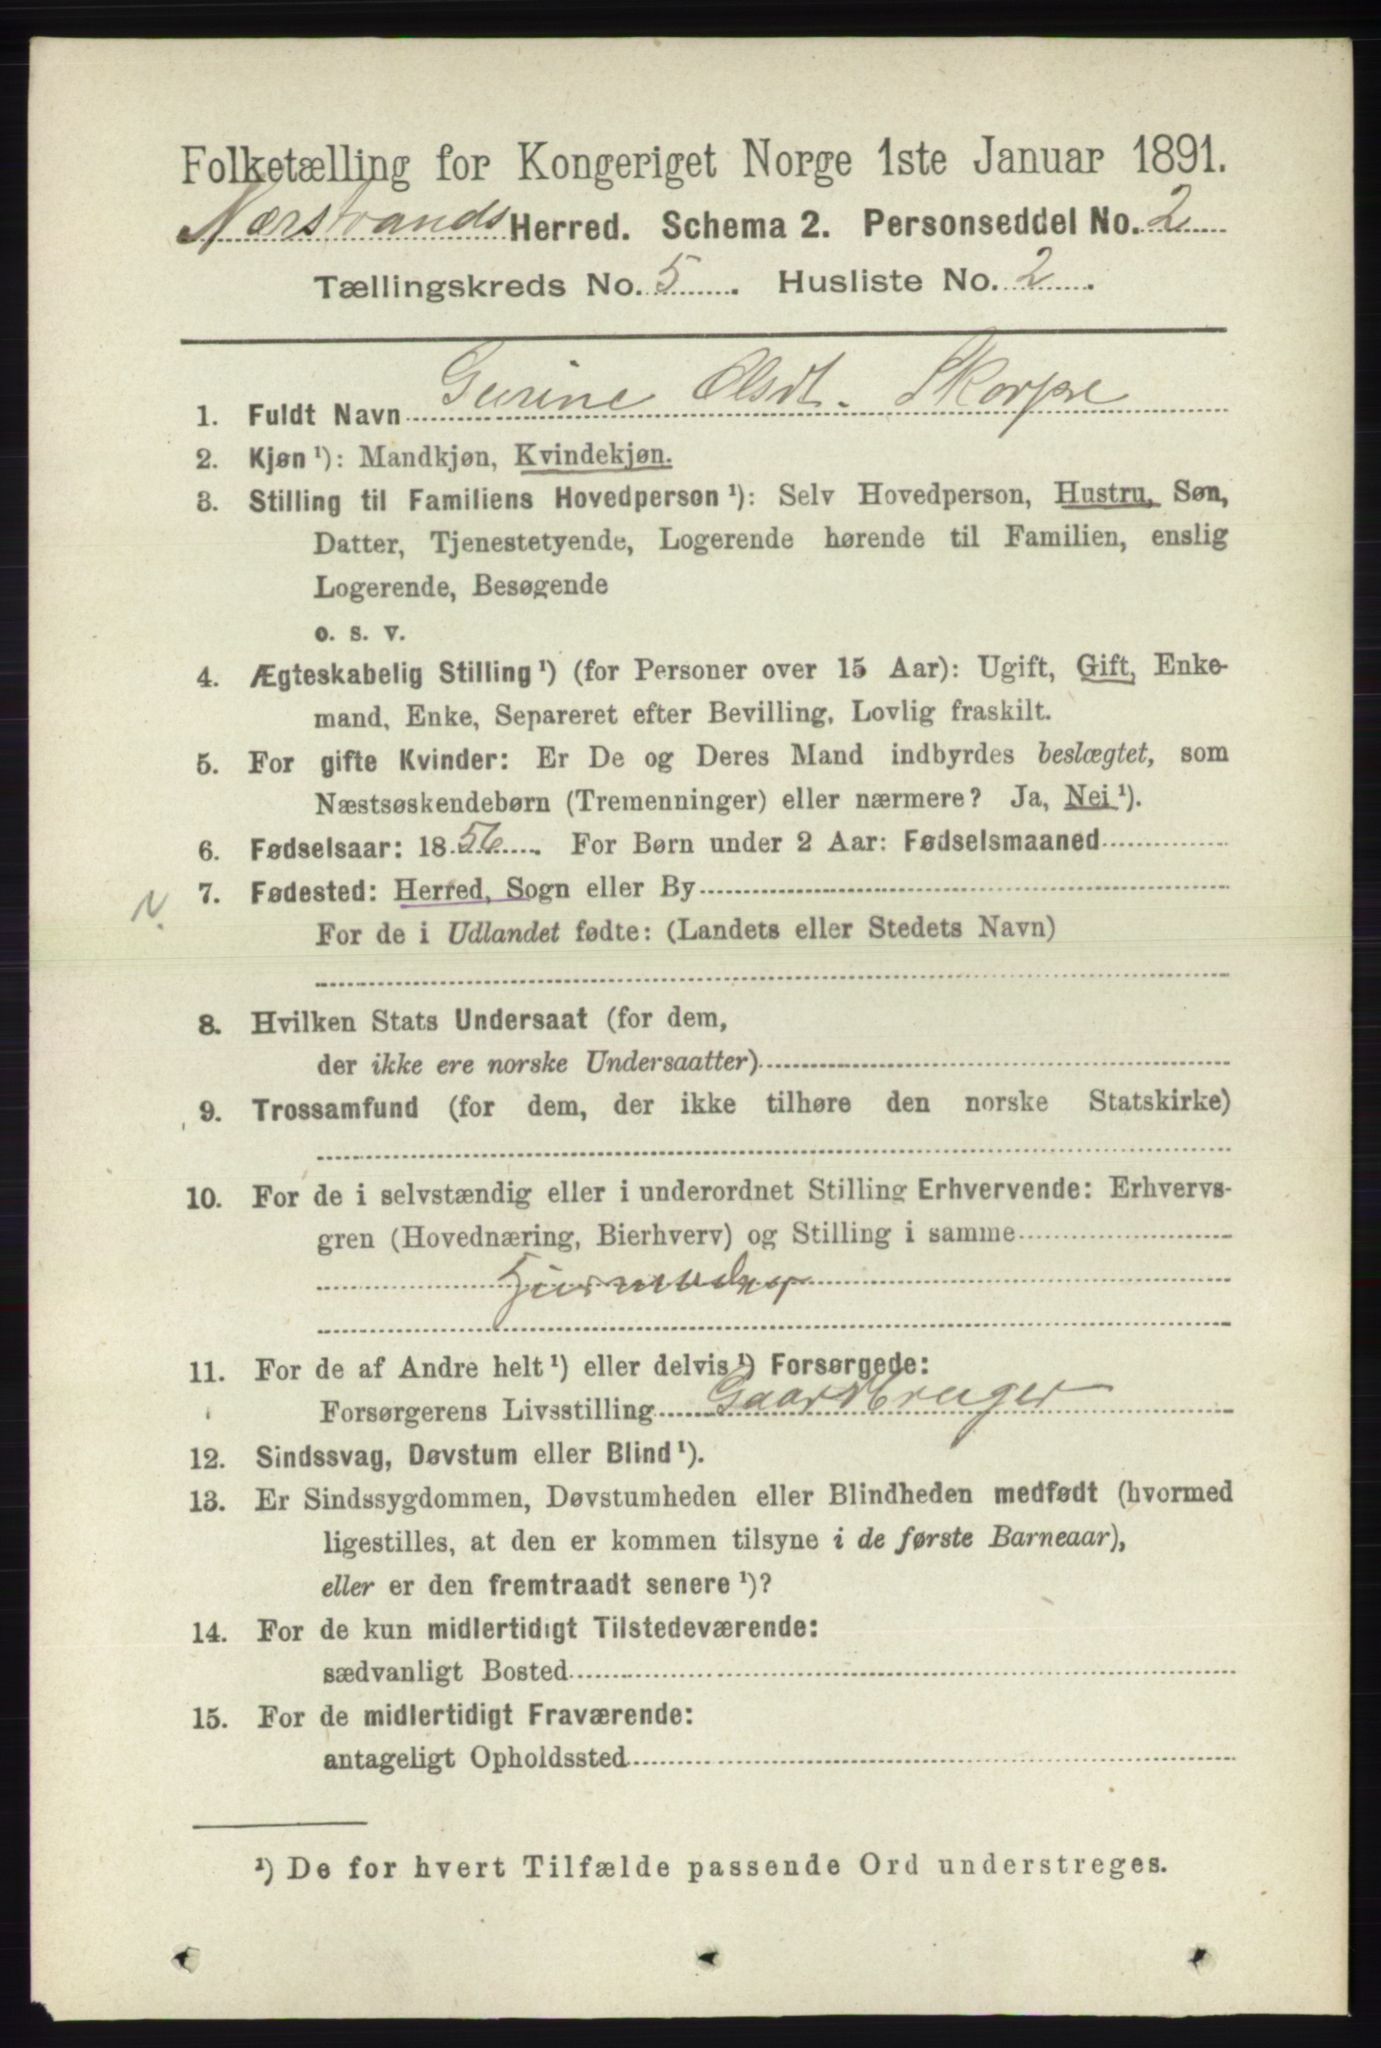 Folketælling for Kongeriget Norge 1ste Januar 1891.
Nærstrands Herred. Schema 2. Personseddel No. 2
Tællingskreds No. 5. Husliste No. 2.
1. Fuldt Navn Gurine Olsdt. Skorpe
2. Kjøn ¹): Mandkjøn, Kvindekjøn.
3. Stilling til Familiens Hovedperson ¹): Selv Hovedperson, Hustru, Søn,
Datter, Tjenestetyende, Logerende hørende til Familien, enslig
Logerende, Besøgende
o. s. v.
4. Ægteskabelig Stilling ¹) (for Personer over 15 Aar): Ugift, Gift, Enke-
mand, Enke, Separeret efter Bevilling, Lovlig fraskilt.
5. For gifte Kvinder: Er De og Deres Mand indbyrdes beslægtet, som
Næstsøskendebørn (Tremenninger) eller nærmere? Ja, Nei ¹).
6. Fødselsaar: 1856. For Børn under 2 Aar: Fødselsmaaned
N. 7. Fødested: Herred, Sogn eller By
For de i Udlandet fødte: (Landets eller Stedets Navn)
8. Hvilken Stats Undersaat (for dem,
der ikke ere norske Undersaatter)
9. Trossamfund (for dem, der ikke tilhøre den norske Statskirke)
10. For de i selvstændig eller i underordnet Stilling Erhvervende: Erhvervs-
gren (Hovednæring, Bierhverv) og Stilling i samme
Husmoder
11. For de af Andre helt ¹) eller delvis ¹) Forsørgede:
Forsørgerens Livsstilling Gaardbruger
12. Sindssvag, Døvstum eller Blind ¹).
13. Er Sindssygdommen, Døvstumheden eller Blindheden medfødt (hvormed
ligestilles, at den er kommen tilsyne i de første Barneaar),
eller er den fremtraadt senere ¹)?
14. For de kun midlertidigt Tilstedeværende:
sædvanligt Bosted
15. For de midlertidigt Fraværende:
antageligt Opholdssted
¹) De for hvert Tilfælde passende Ord understreges.